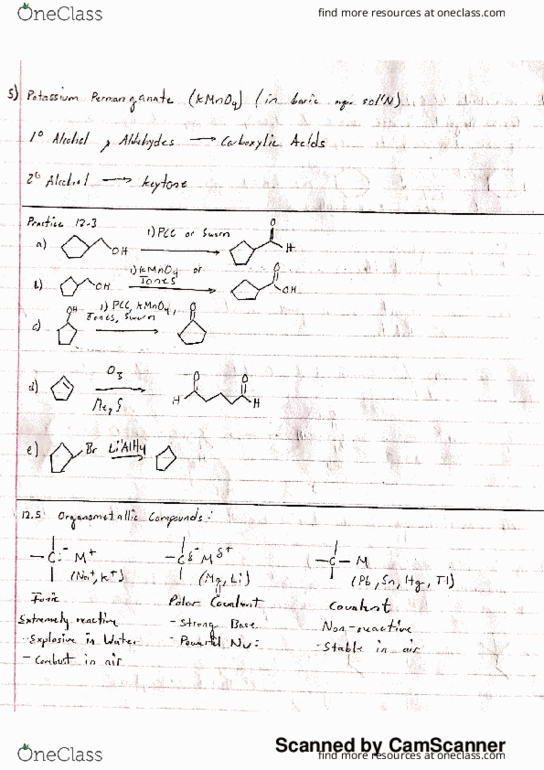 OneClass
find more resources at oneclass.com
5) Potassium Permanganate (KMnO4) (in basic aqu. sol'N)
1° Alcohol, Aldehydes → Carboxylic Acids
2° Alcohol → keytone
Practice 12-3
a) OH 1) PCC or Swern O H
b) OH 1) KMnO4 or Jones O OH
c) OH 1) PCC, KMnO4, Jones, Swern O
d) O3 Me2S O H O H
e) Br LiAlH4
12.5 Organometallic Compounds:
-C:- M+ -Cδ- Mδ+ -C-M
(Na+, K+) (Mg, Li) (Pb, Sn, Hg, Tl)
Ionic Polar Covalent Covalent
Extremely reactive - Strong Base Non-reactive
- Explosive in Water - Powerful Nu: - Stable in air
- Combust in air
Scanned by CamScanner
OneClass
find more resources at oneclass.com